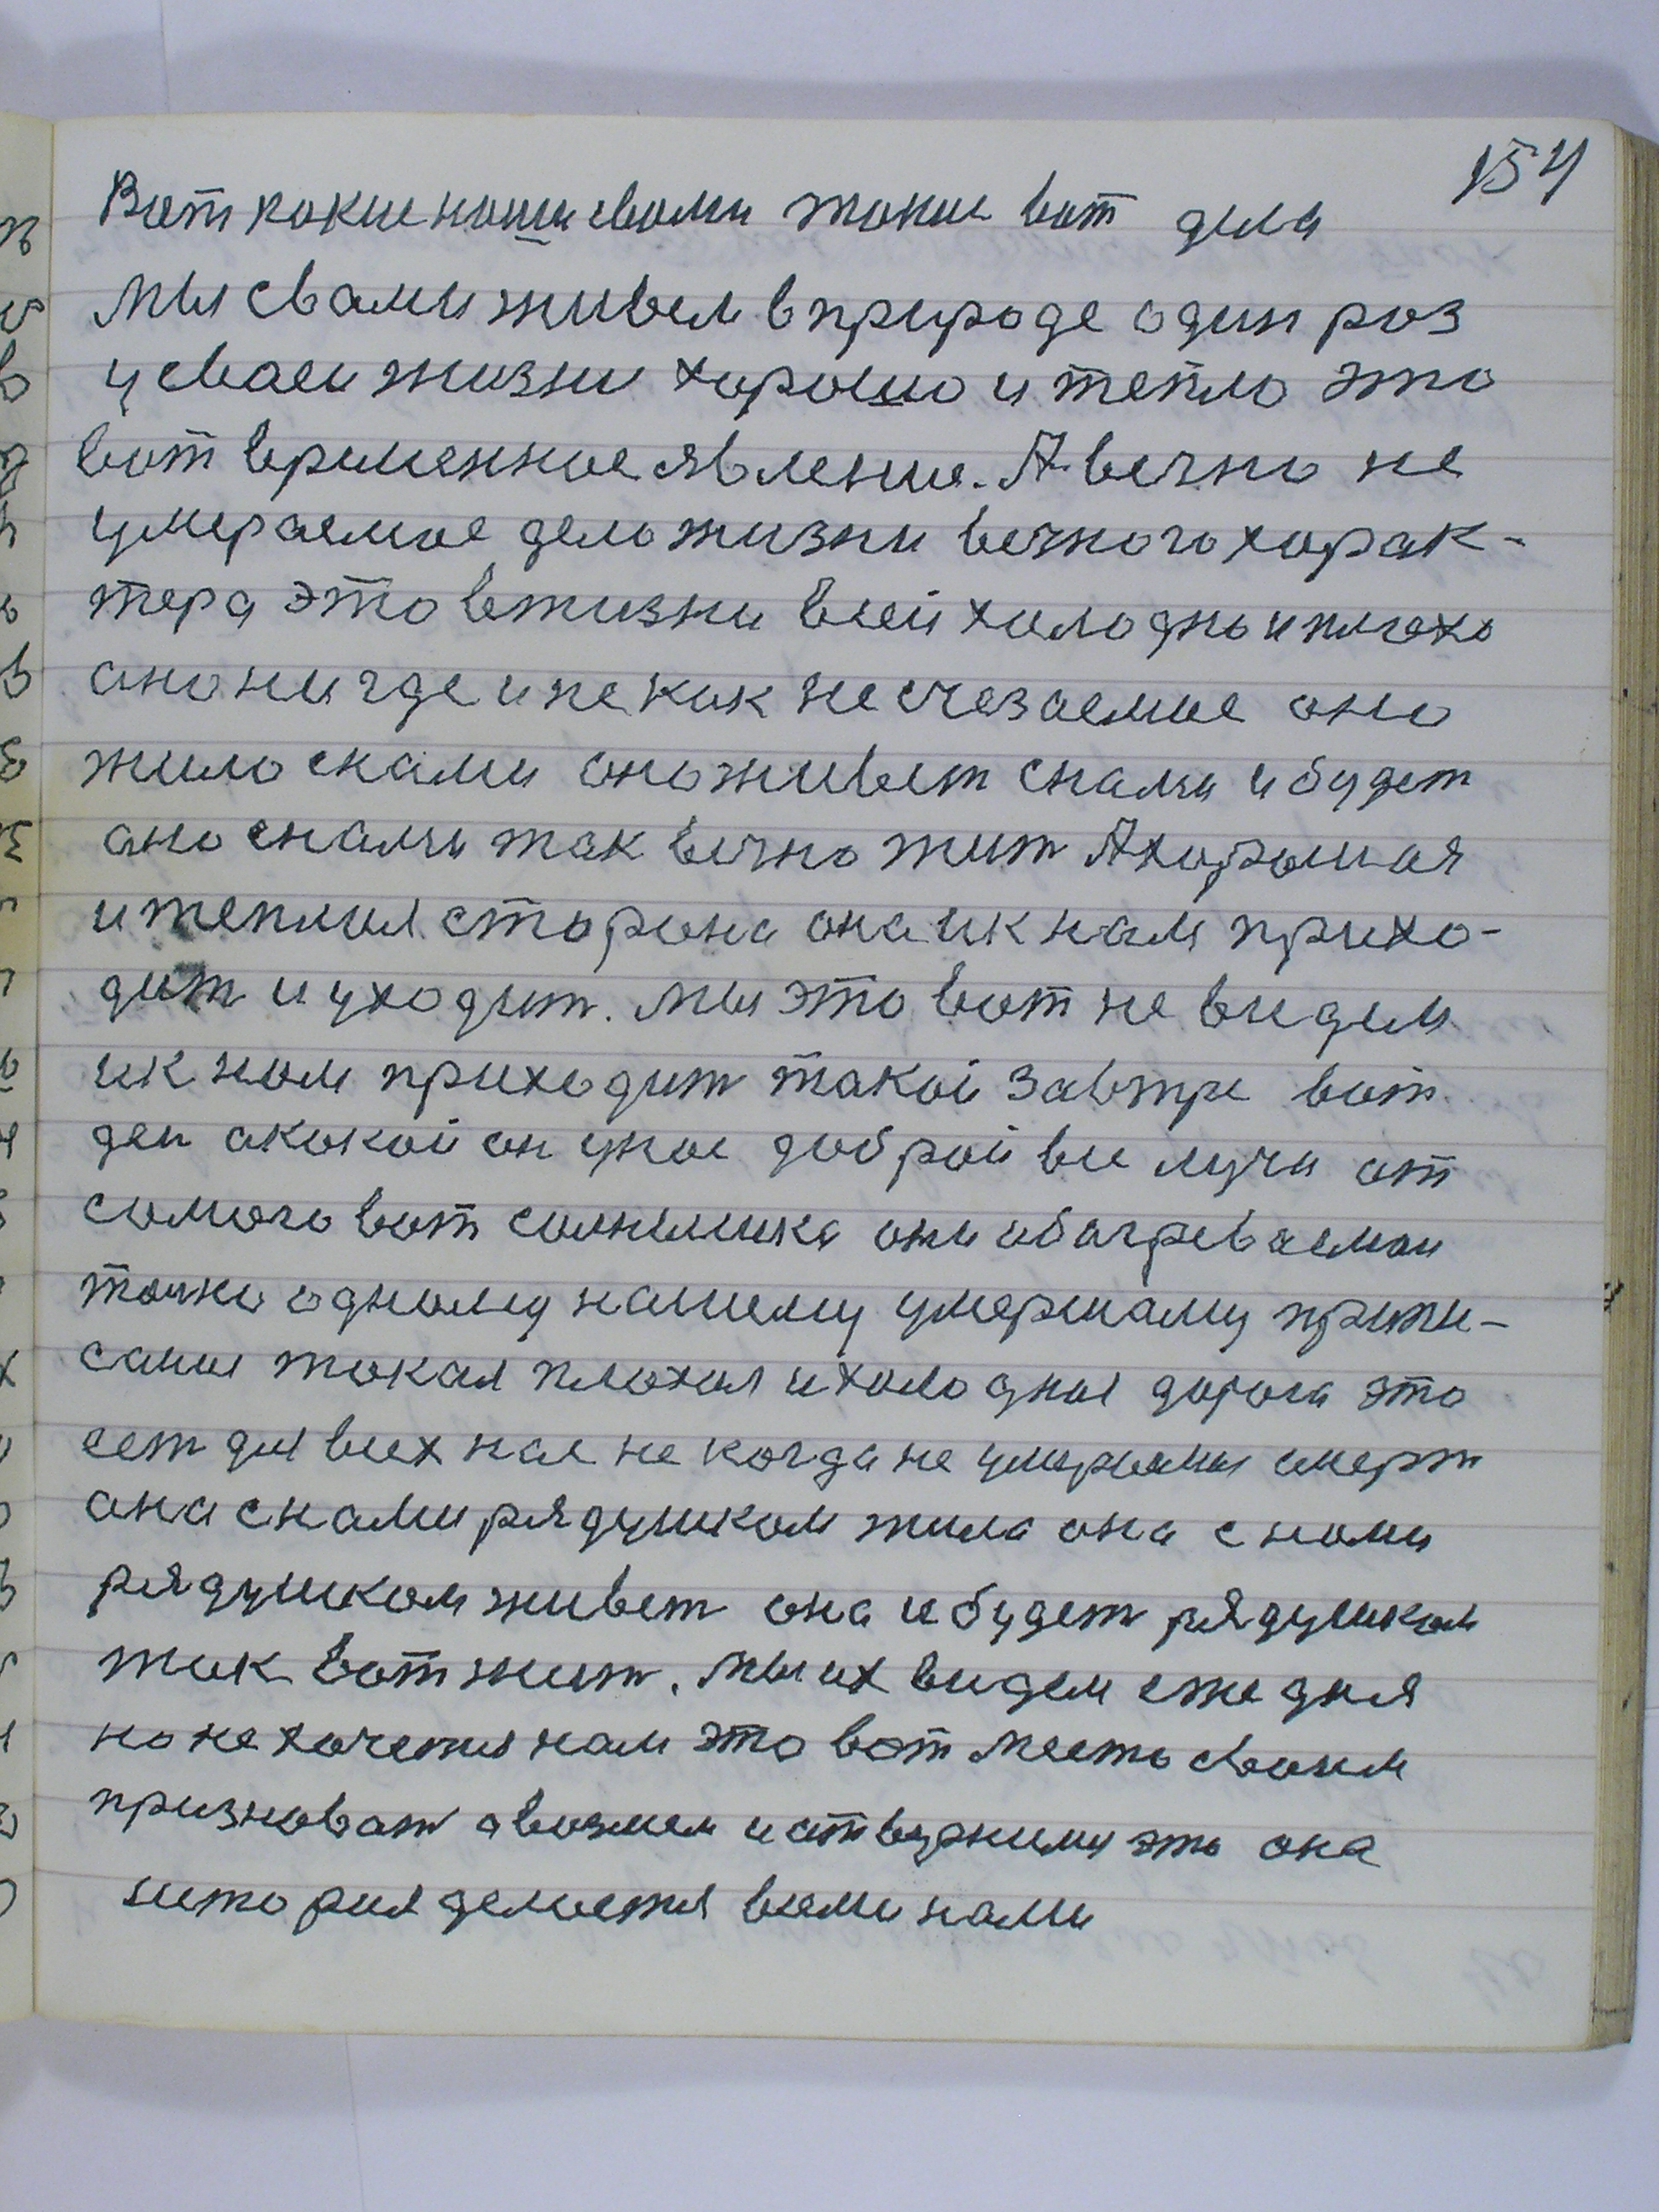 154
Вот какие наши свами такие вот дела
Мы свами живем вприроде один раз
усваеи жизни хорошо и тепло это
вот временное явление. А вечно не
умераемае дело жизни вечного харак-
тера это вжизни всей холодно и плохо
оно ни где и не как не счезаемае оно
жило снами оно живет снами и будет
оно снами так вечно жит А хорошая
и теплая старана она ик нам прихо-
дит и уходит. Мы это вот не видем
ик нам приходит такой завтре вот
ден а какой он у нас доброй все лучи от
самого вот солнышка они абагреваемаи
точно одному нашему умершаму припи-
сания такая плохая и холодная дорога это
ест для всех нас не когда не умераемая смерт
она снами рядушкам жила она снами
рядушкам живет она и будет рядушкам
так вот жит. Мы их видем еже дня
но не хочется нам это вот место своим
признават а возмем и отвернимся это она
история делается всеми нами